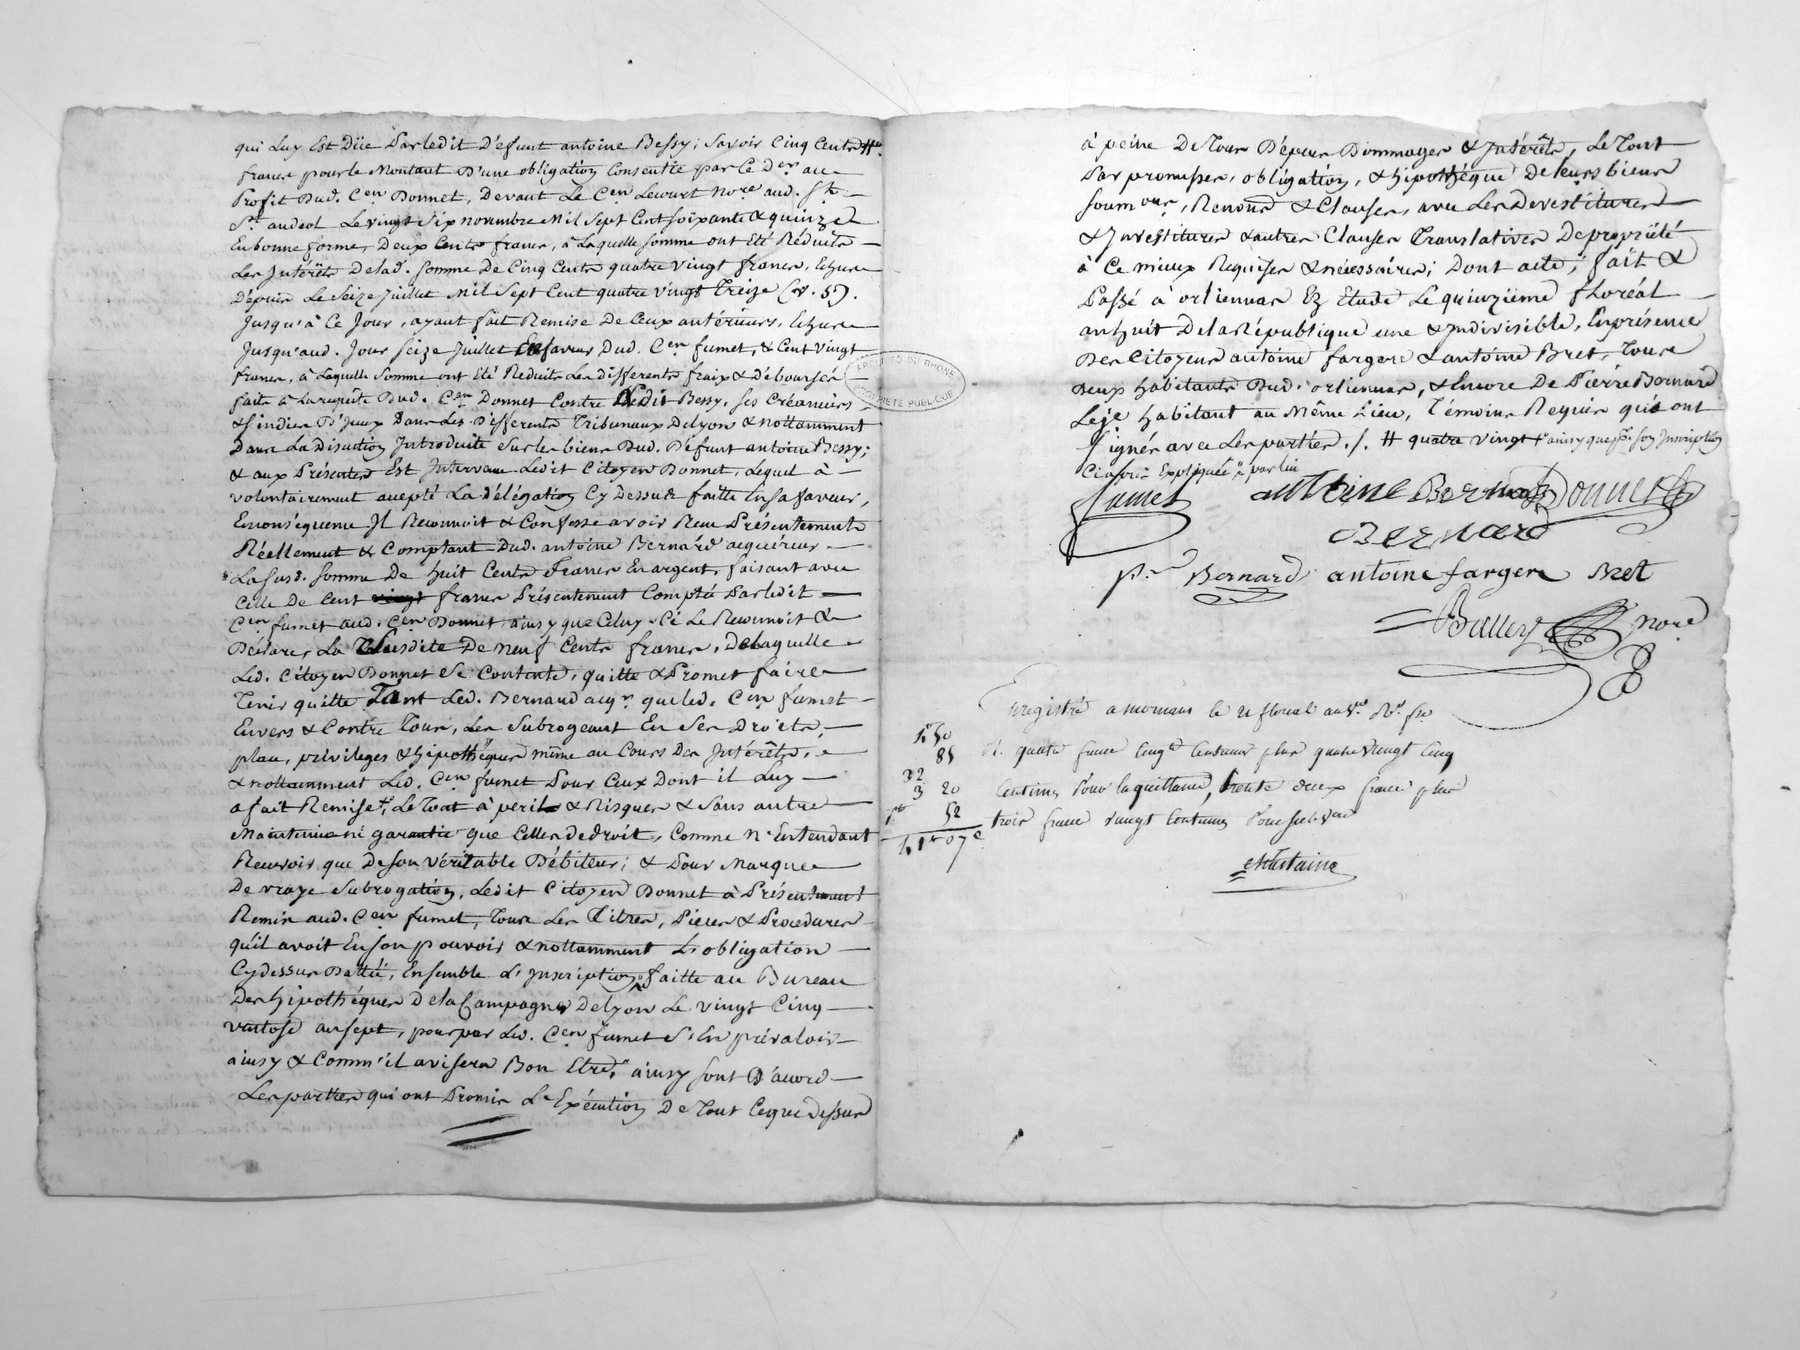 qui Luy Est Düe Par ledit Défunt antoine Bessy; Savoir Cinq Cents #
francs pour le Montant D'une obligation Consentie par Ce Der au
Profit Dud. Cen Donnet, Devant Le Cen Lecourt Nore aud.
St andeol Le vingt Six novembre Mil Sept Cent soixante & quinze
En bonne forme, Deux Cents francs, a Laquelle somme ont Eté Réduits
Les Intérêts Delad. somme De Cinq Cents quatre vingt francs, Echus
Dépuis Le Seize Juillet Mil Sept Cent quatre vingt Treize (v. S.)
Jusqu'à Ce Jour, ayant fait Remise De Ceux antérieurs, Echus
Jusqu'aud. Jour Seize Juillet En faveur Dud. Cen fumet, & Cent vingt
francs, à Laquelle Somme ont Eté Reduits Les Differents fraix & Déboursés
faits à La requête Dud. Cen Donnet Contre Ledit Bessy, ses Créanciers
& sindics D'jceux Dans Les Differents Tribunaux Delyon & nottamment
Dans La Discution Introduite Sur les biens Dud. Défunt antoine Bessy;
& aux Présentes Est Intervenu Ledit Citoyen Donnet, Lequel à
volontairement accepté La Délégation Cy Dessus faitte En sa faveur,
En conséquence Il Reconnoit & Confesse avoir Reçu Présentement
Réellement & Comptant Dud. antoine Bernard acquéreur
La susd. somme De huit Cents francs En argent, faisant avec
Celle De Cent vingt francs Présentement Comptée Par ledit
Cen fumet aud. Cen Donnet ainsy que Celuy-Ci Le Reconnoit &
Déclare, La susdite De neuf Cents francs, De laquelle
Led. Citoyen Donnet Se Contente, quitte & Promet faire
Tenir quitte Tant Led. Bernard acqr que led. Cen fumet
Envers & Contre Tous, Les Subrogeant En Ses Droits,
place, privileges & hipothéques même au Cours Des Intérêts,
& nottamment Led. Cen fumet Pour Ceux Dont il Luy
a fait Remise, Le Tout à perils & Risques & Sans autre
Maintenue ni garantie que Celles de droit, Comme N'Entendant
Recevoir que De son véritable Débiteur; & Pour Marque
De vraye Subrogation, Ledit Citoyen Donnet à Présentement
Remis aud. Cen fumet, Tous Les Titres, Pieces & Procedures
qu'il avoit En son pouvoir & nottamment L'obligation
Cy dessus Dattée, Ensemble L'Inscription faitte au Bureau
Des hipothéques De la Campagne Delyon Le vingt Cinq
vantose an sept, pour par Led. Cen fumet S'En prévaloir
ainsy & Comm'il avisera Bon Etre, ainsy sont D'acord
Les parties qui ont Promis L'Exécution De Tout Ceque dessus
à peine De Tous Dépens Dommages & Intérêts, Le Tout
Par promesses, obligation, & hipothéque De leurs biens
soumons, Renond & Clauses, avec Les Devestitures
& Investitures & autres Clauses Translatives De propriété
à Ce mieux Requises & nécessaires; Dont acte; fait &
Passé à orliennas Ez Etude Le quinzième floréal
an huit De la République une & Indivisible, En présence
Des Citoyens antoine fargere & antoine Bret, Tous
Deux habitants Dud. orliennas, & Encore De Pierre Bernard
Leje habitant au Même Lieu, Témoins Requis qui ont
signés avec Les parties ./. # quatre vingt + ainsy que pr. son Inscription
Ciaprès Expliquée par lui
fumet antoine Bernard Donnet
Bernard
p.re Bernard antoine fargere Bret
Balley nore
Enregistré a mornans le 21 floreal an 8
R. quatre francs Cinqte Centimes plus quatre vingt Cinq
Centimes Pour la quittance, trente deux francs plus
trois francs vingt Centimes Pour
4f 50
85
32
3 20
52
41f 07c